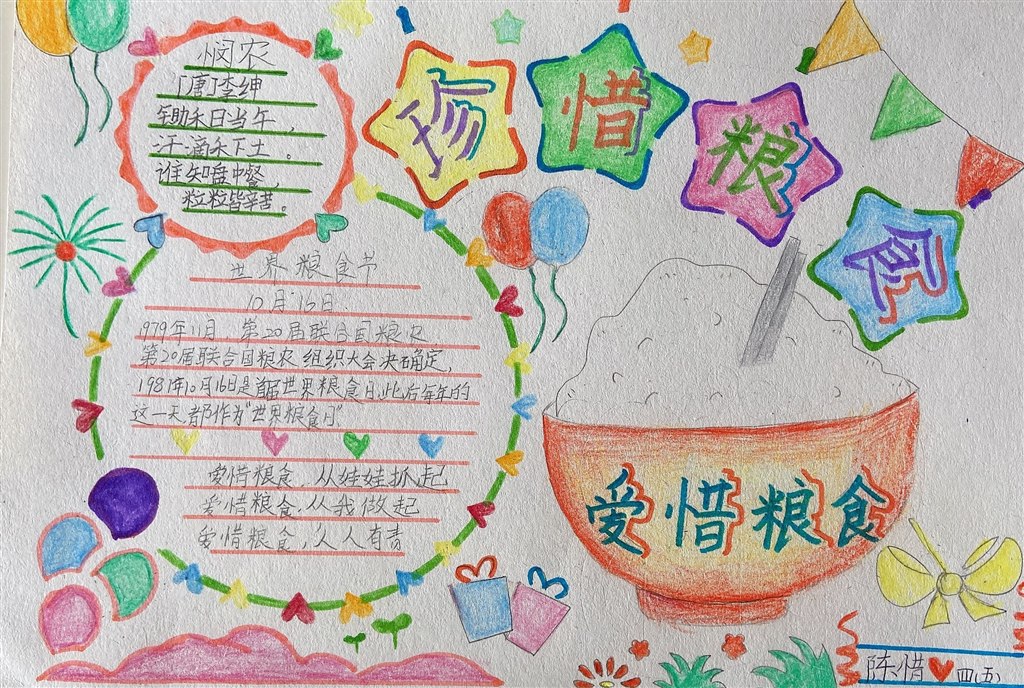 悯农
「唐」李绅
锄禾日当午，
汗滴禾下土。
谁知盘中餐，
粒粒皆辛苦。
珍惜粮食
世界粮食节
10月16日
1979年11月 第20届联合国粮农
第20届联合国粮农组织大会决确定，
1981年10月16日是首届世界粮食日,此后每年的
这一天,都作为“世界粮食日”
爱惜粮食，从娃娃抓起
爱惜粮食，从我做起
爱惜粮食，人人有责
爱惜粮食
陈惜 四(五)